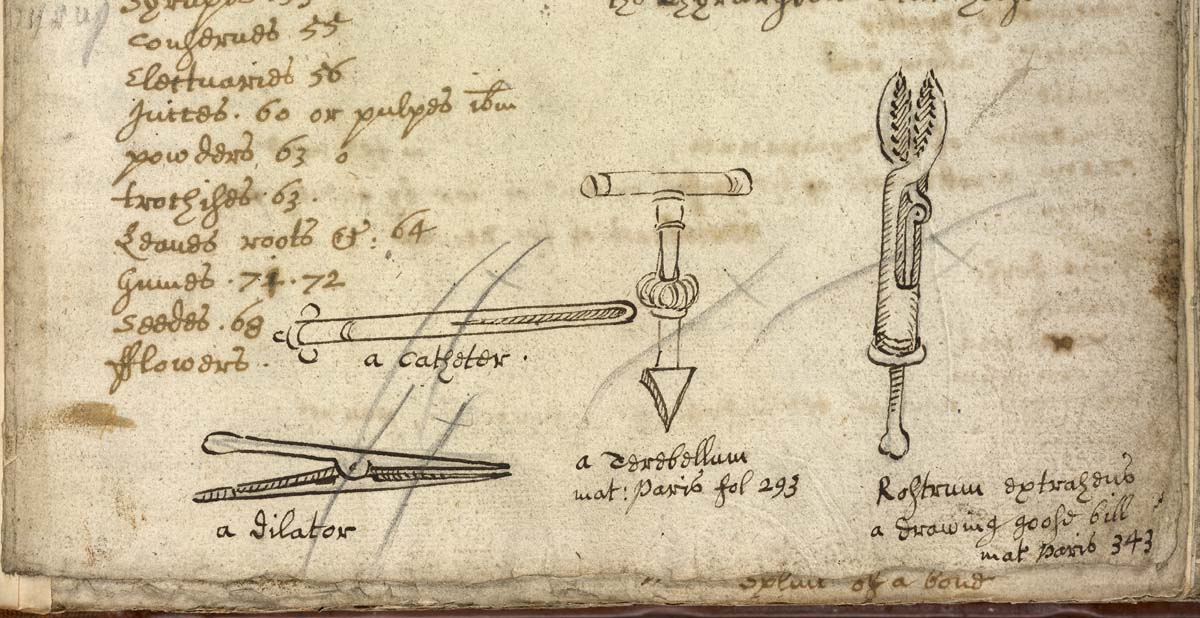 Conserves 55
Electuaries 56
Juices . 60 or pulpes ibm
powders 63
trochises 63 .
Leaves roots &: 64
Gumes . 71 . 72
Seedes . 68
fflowers .
a Catheter .
a dilator
a Terebellum
mat: Paris fol 293
Rostrum extrahens
a drawing goose bill
mat Paris 343
of a bone